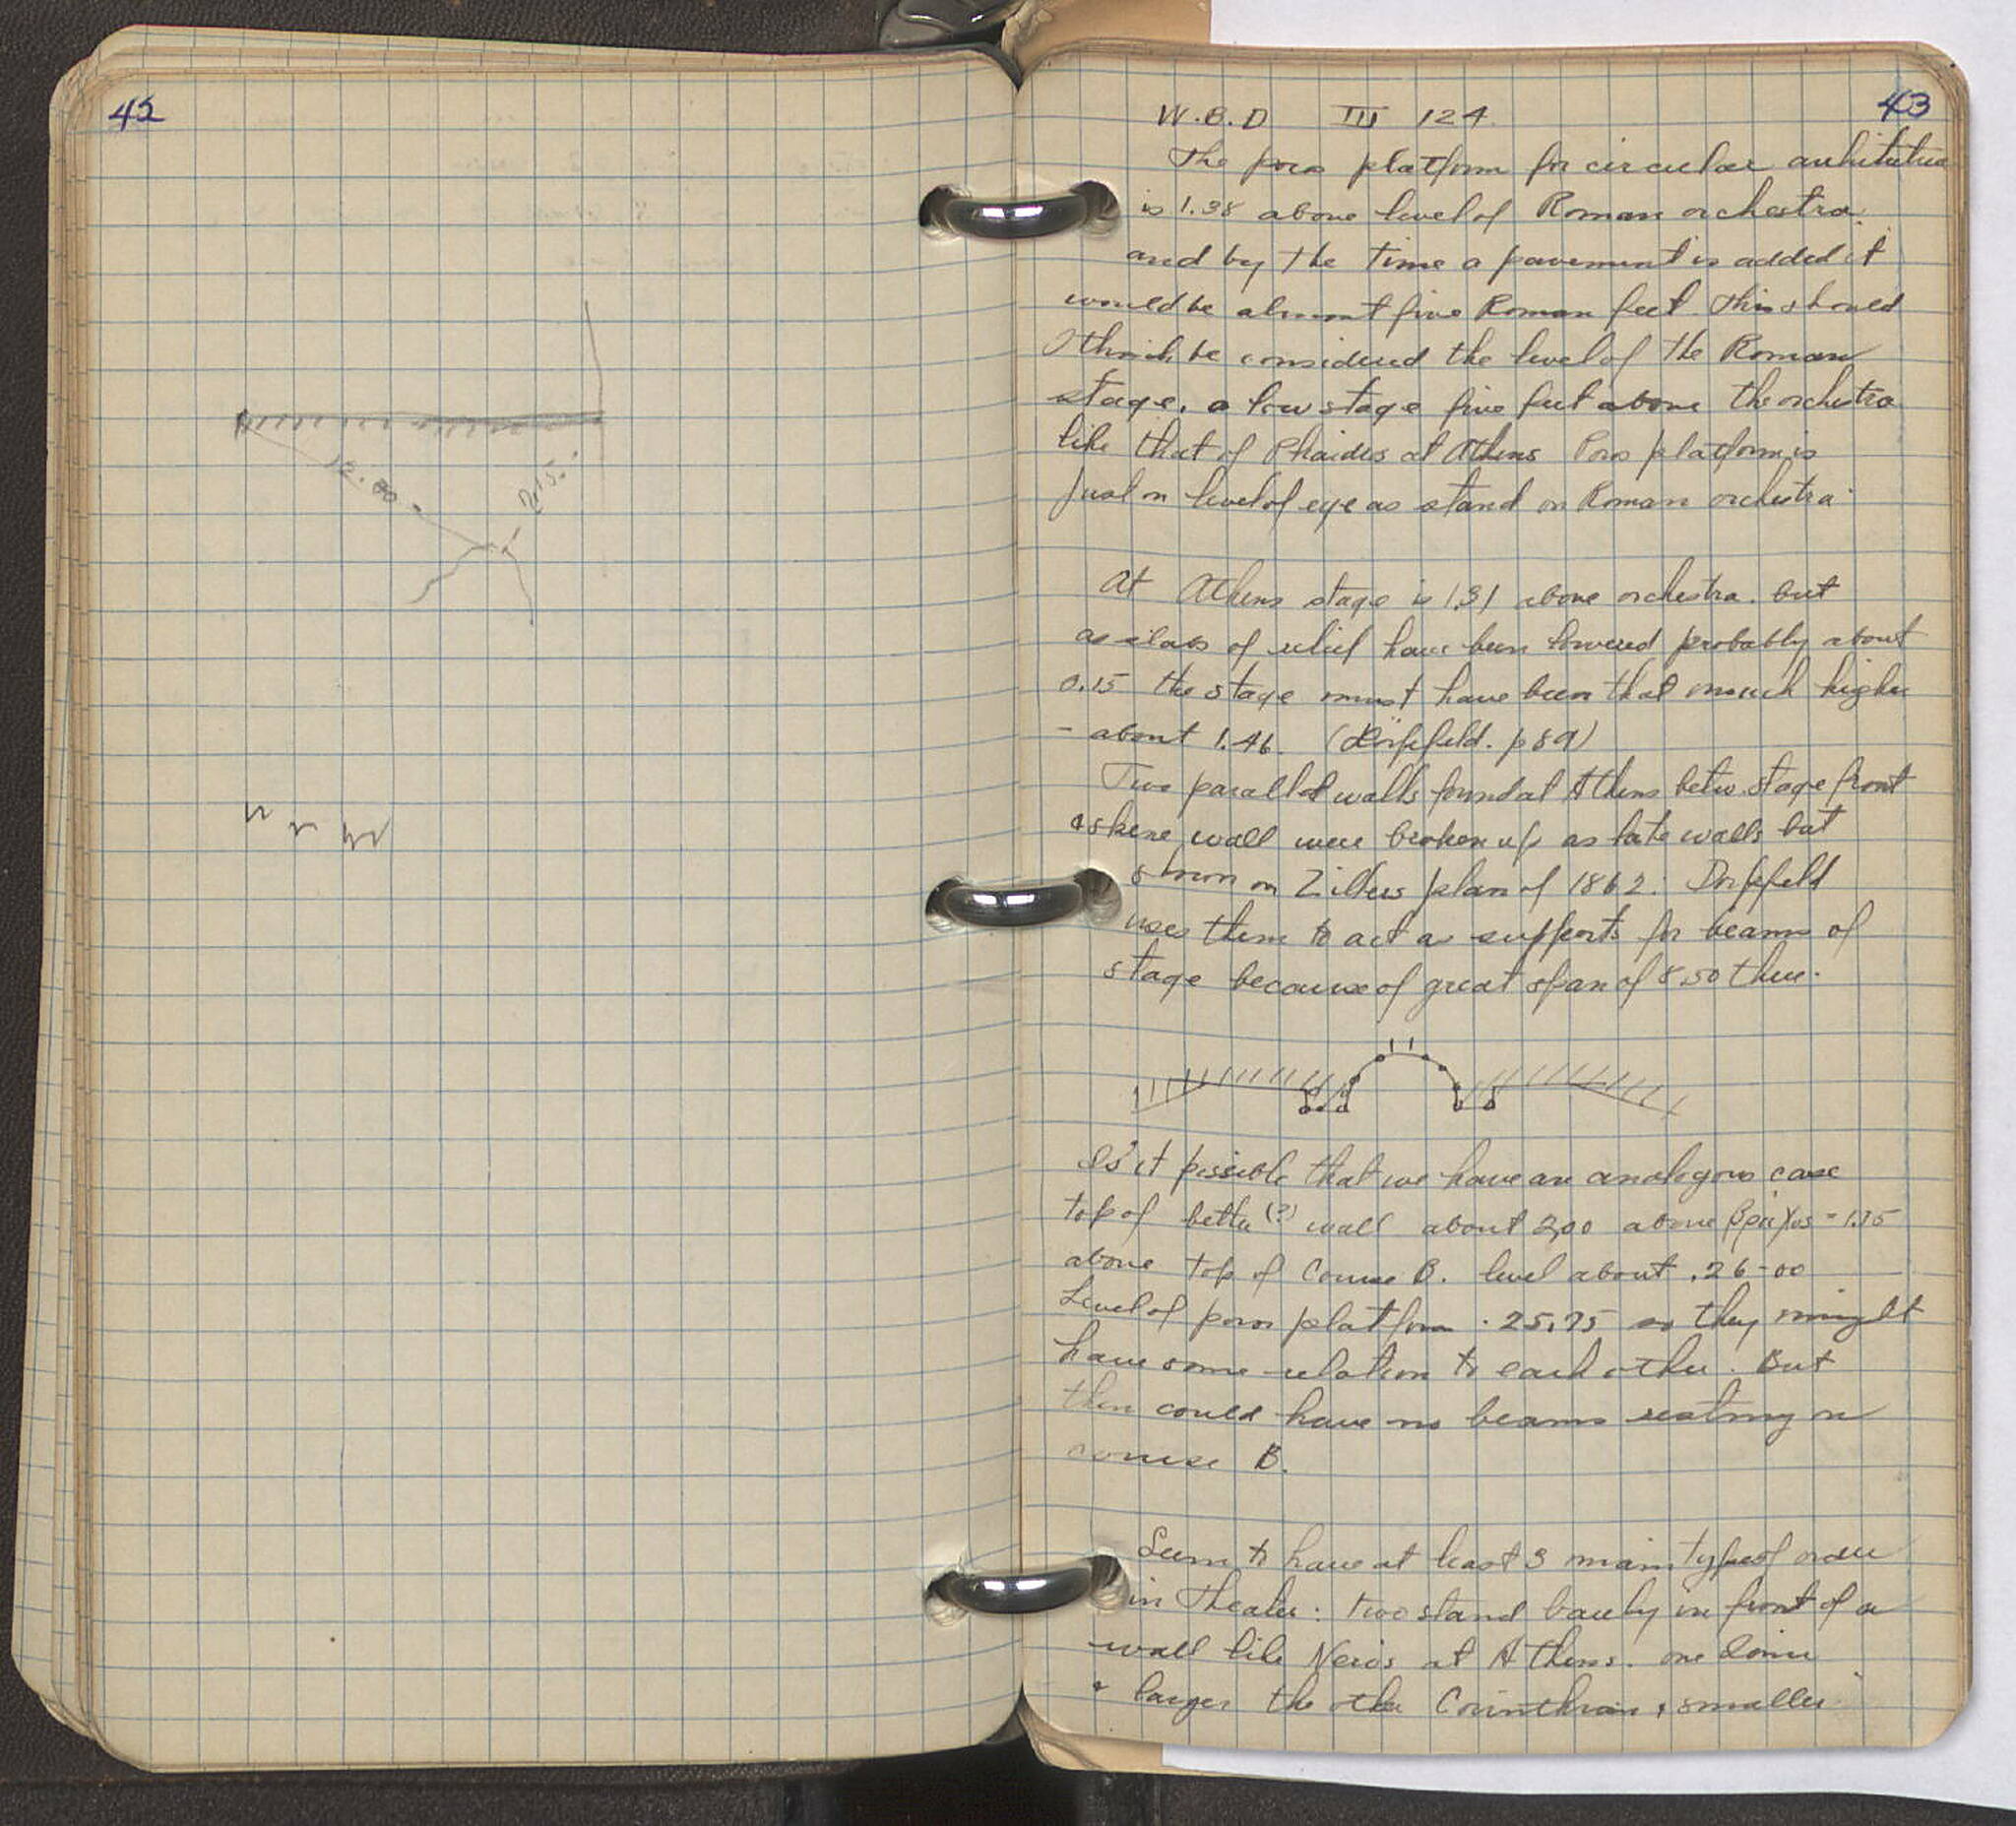 42
12.00
2.15
43
W.B.D III 124
The poros platform for circular architecture
is 1.38 above level of Roman orchestra
and by the time a pavement is added it
would be almost five Roman feet. This should
I think be considered the level of the Roman
stage. a low stage five feet above the orchestra
like that of Phaidros at Athens Poros platform is
just on level of eye as stand on Roman orchestra.
At Athens stage is 1.31 above orchestra. but
as slabs of relief have been lowered probably about
0.15 the stage must have been that much higher
- about 1.46. (Dörpfeld. p 89)
Two parallel walls found at Athens betw. stage front
& skene wall were broken up as late walls but
shown on Zillers plan of 1862. Dorpfeld
uses them to act as supports for beams of
stage because of great span of 8.50 there.
Is it possible that we have an analogous case
top of better (?) wall about 2,00 above = 1.15
above top of Course B. level about .26-00
Level of poros platform . 25.75 so they might
have some relation to each other. But
then could have no beams resting on
course B.
Seem to have at least 3 main types of order
in Theater: two stand barely in front of a
wall like Nero's at Athens. one Ionic
& larger the other Corinthian & smaller